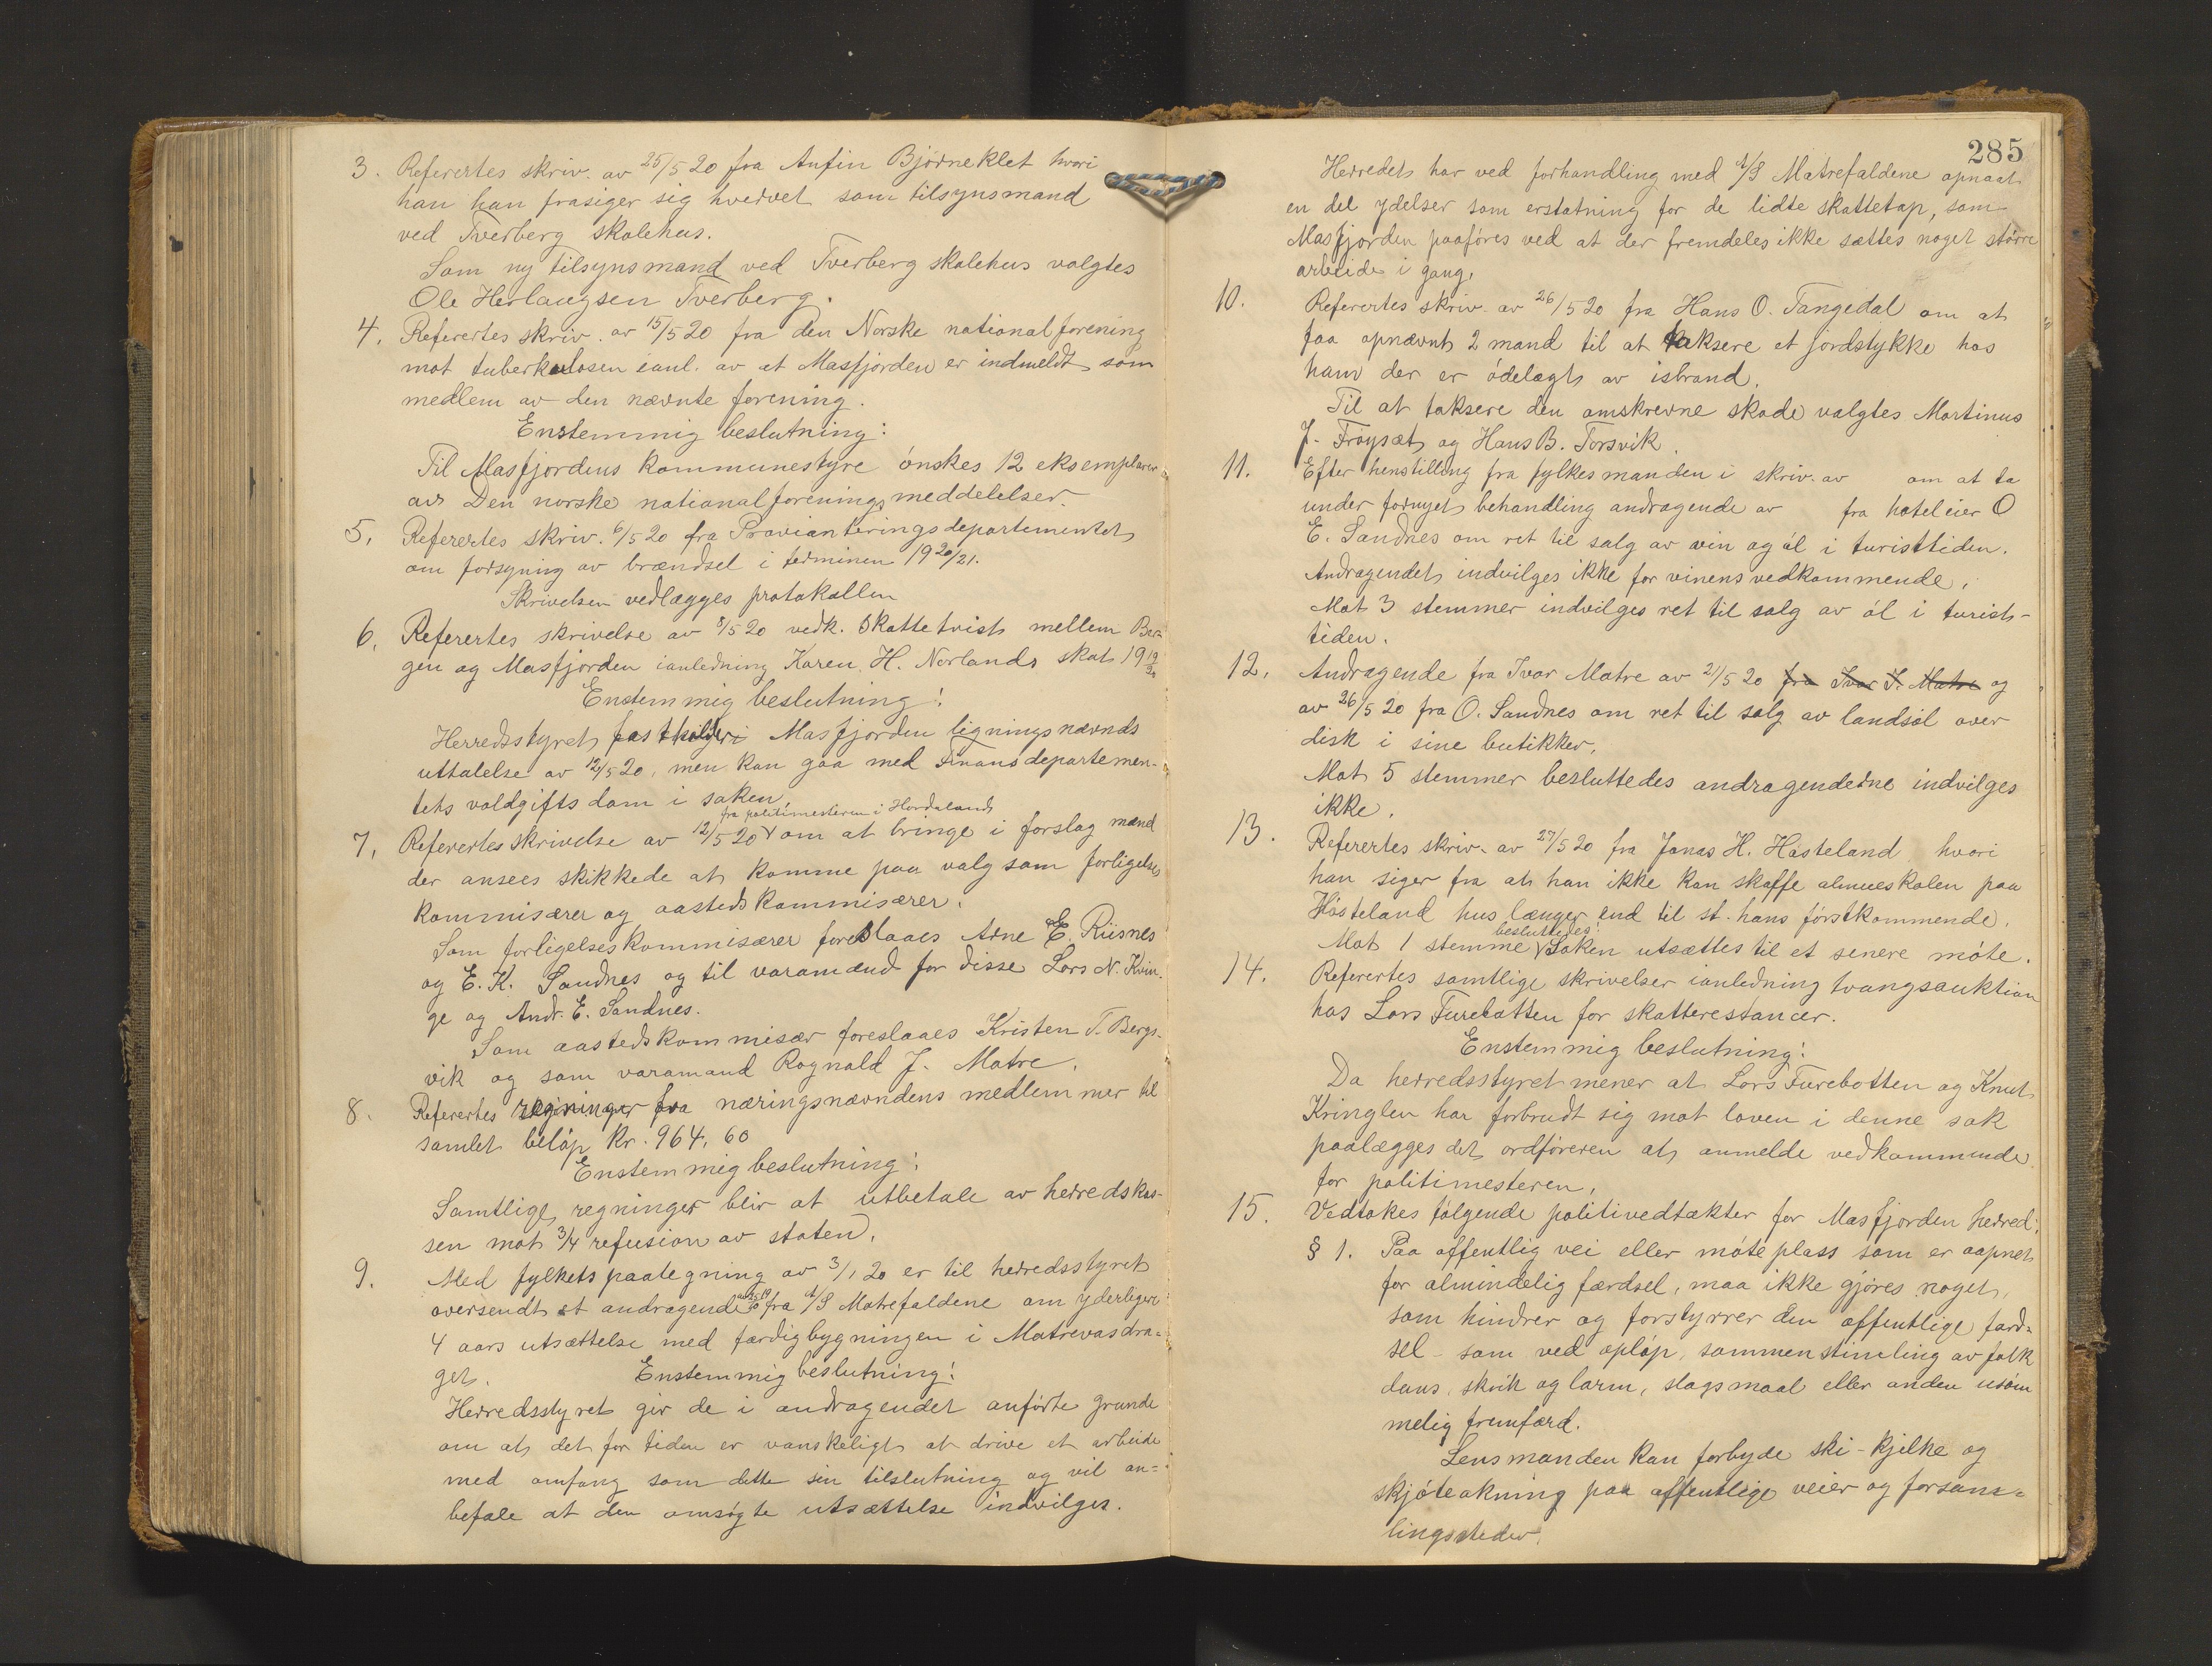 3. Referertes skriv. av 25/5 20 fra Anfin Bjørneklet hvori
han han frasiger sig hvervet som tilsynsmand
ved Tverberg skolehus.
Som ny tilsynsmand ved Tverberg skolehus valgtes
Ole Herlaugsen Tverberg.
4. Referertes skriv. av 15/5 20 fra den Norske nationalforening
mot tuberkulosen ianl. av at Masfjorden er indmeldt som
medlem av den nævnte forening.
Enstemmig beslutning:
Til Masfjordens kommunestyre ønskes 12 eksemplarer
av Den norske nationalforenings meddelelser.
5. Referertes skriv. 6/5 20 fra Provianteringsdepartementet
om forsyning av brændsel i terminen 1920/21.
Skrivelsen vedlægges protokollen
6. Referertes skrivelse av 8/5 20 vedk. Skattetvist mellem Ber-
gen og Masfjorden ianledning Karen H. Norlands skat 1919/20
Enstemmig beslutning!
Herredsstyret fastholder Masfjorden ligningsnævnds
uttalelse av 12/5 20, men kan gaa med Finansdepartemen-
tets voldgiftsdom i saken.
fra politimesteren i Hordaland
7. Referertes skrivelse av 12/5 20 om at bringe i forslag mænd
der ansees skikkede at komme paa valg som forligelses
kommisærer og aastedskommisærer.
Som forligelseskommisærer foreslaaes Arne E. Riisnes
og E. K. Sandnes og til varamænd for disse Lars N. Kvin-
ge og Andr. E. Sandnes.
Som aastedskommisær foreslaaes Kristen T. Bergs-
vik og som varamand Rognald J. Matre.
8. Referertes regninger fra næringsnævndens medlemmer til
samlet beløp kr. 964,60
Enstemmig beslutning:
Samtlige regninger blir at utbetale av herredskas-
sen mot 3/4 refusion av staten.
9. Med fylkets paategning av 3/1 20 er til herredsstyret
oversendt et andragende fra A/S Matrefaldene om yderligere
4 aars utsættelse med færdigbygningen i Matrevasdra-
get. Enstemmig beslutning!
Herredsstyret gir de i andragendet anførte grunde
om at det for tiden er vanskeligt at drive et arbeide
med omfang som dette sin tilslutning og vil an-
befale at den omsøgte utsættelse indvilges.
285
Herredet har ved forhandling med A/S Matrefaldene opnaat
en del ydelser som erstatning for de lidte skattetap, som
Masfjorden paaføres ved at der fremdeles ikke sættes noget større
arbeide i gang.
10. Referertes skriv. av 26/5 20 fra Hans O. Tangedal om at
faa opnævnt 2 mand til at taksere et jordstykke hos
ham der er ødelagt av isbrand.
Til at taksere den omskrevne skade valgtes Martinus
J. Frøyset og Hans B. Torsvik.
11. Efter henstilling fra fylkesmanden i skriv. av om at ta
under fornyet behandling andragende av fra hoteleier O
E. Sandnes om ret til salg av vin og øl i turisttiden.
Andragendet indvilges ikke for vinens vedkommende.
Mot 3 stemmer indvilges ret til salg av øl i turist-
tiden.
12. Andragende fra Ivar Matre av 21/5 20 fra Ivar I. Matre og
av 26/5 20 fra O. Sandnes om ret til salg av landsøl over
disk i sine butikker.
Mot 5 stemmer besluttedes andragenderne indvilges
ikke.
13. Referertes skriv. av 27/5 20 fra Jonas H. Høsteland hvori
han siger fra at han ikke kan skaffe almueskolen paa
Høsteland hus længer end til st. hans førstkommende.
besluttedes:
Mot 1 stemme Saken utsættes til et senere møte.
14. Referertes samtlige skrivelser ianledning tvangsauktion
hos Lars Furebotten for skatterestancer.
Enstemmig beslutning:
Da herredsstyret mener at Lars Furebotten og Knut
Kringlen har forbrudt sig mot loven i denne sak
paalægges det ordføreren at anmelde vedkommende
for politimesteren.
15. Vedtokes følgende politivedtækter for Masfjorden herred:
§ 1. Paa offentlig vei eller møteplass som er aapnet
for almindelig færdsel, maa ikke gjøres noget,
som hindrer og forstyrrer den offentlige færd-
sel - som ved opløp, sammenstimling av folk
dans, skrik og larm, slagsmaal eller anden usøm
melig fremfærd.
Lensmanden kan forbyde ski- kjelke og
skjøteakning paa offentlige veier og forsam-
lingssteder.